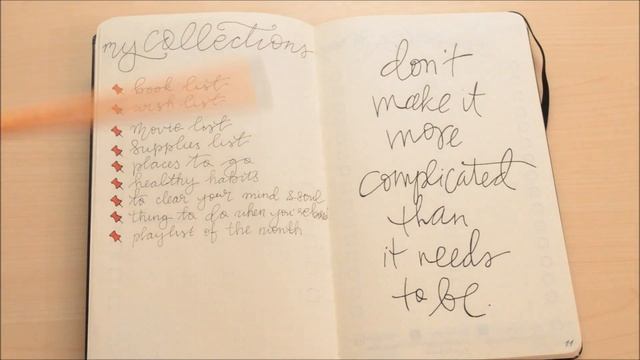 my collections
book list
wish list
movie list
supplies list
places to go
healthy habits
to clear your mind & soul
thing to do when you're bored
playlist of the month
don't
make it
more
complicated
than
it needs
to be.
11